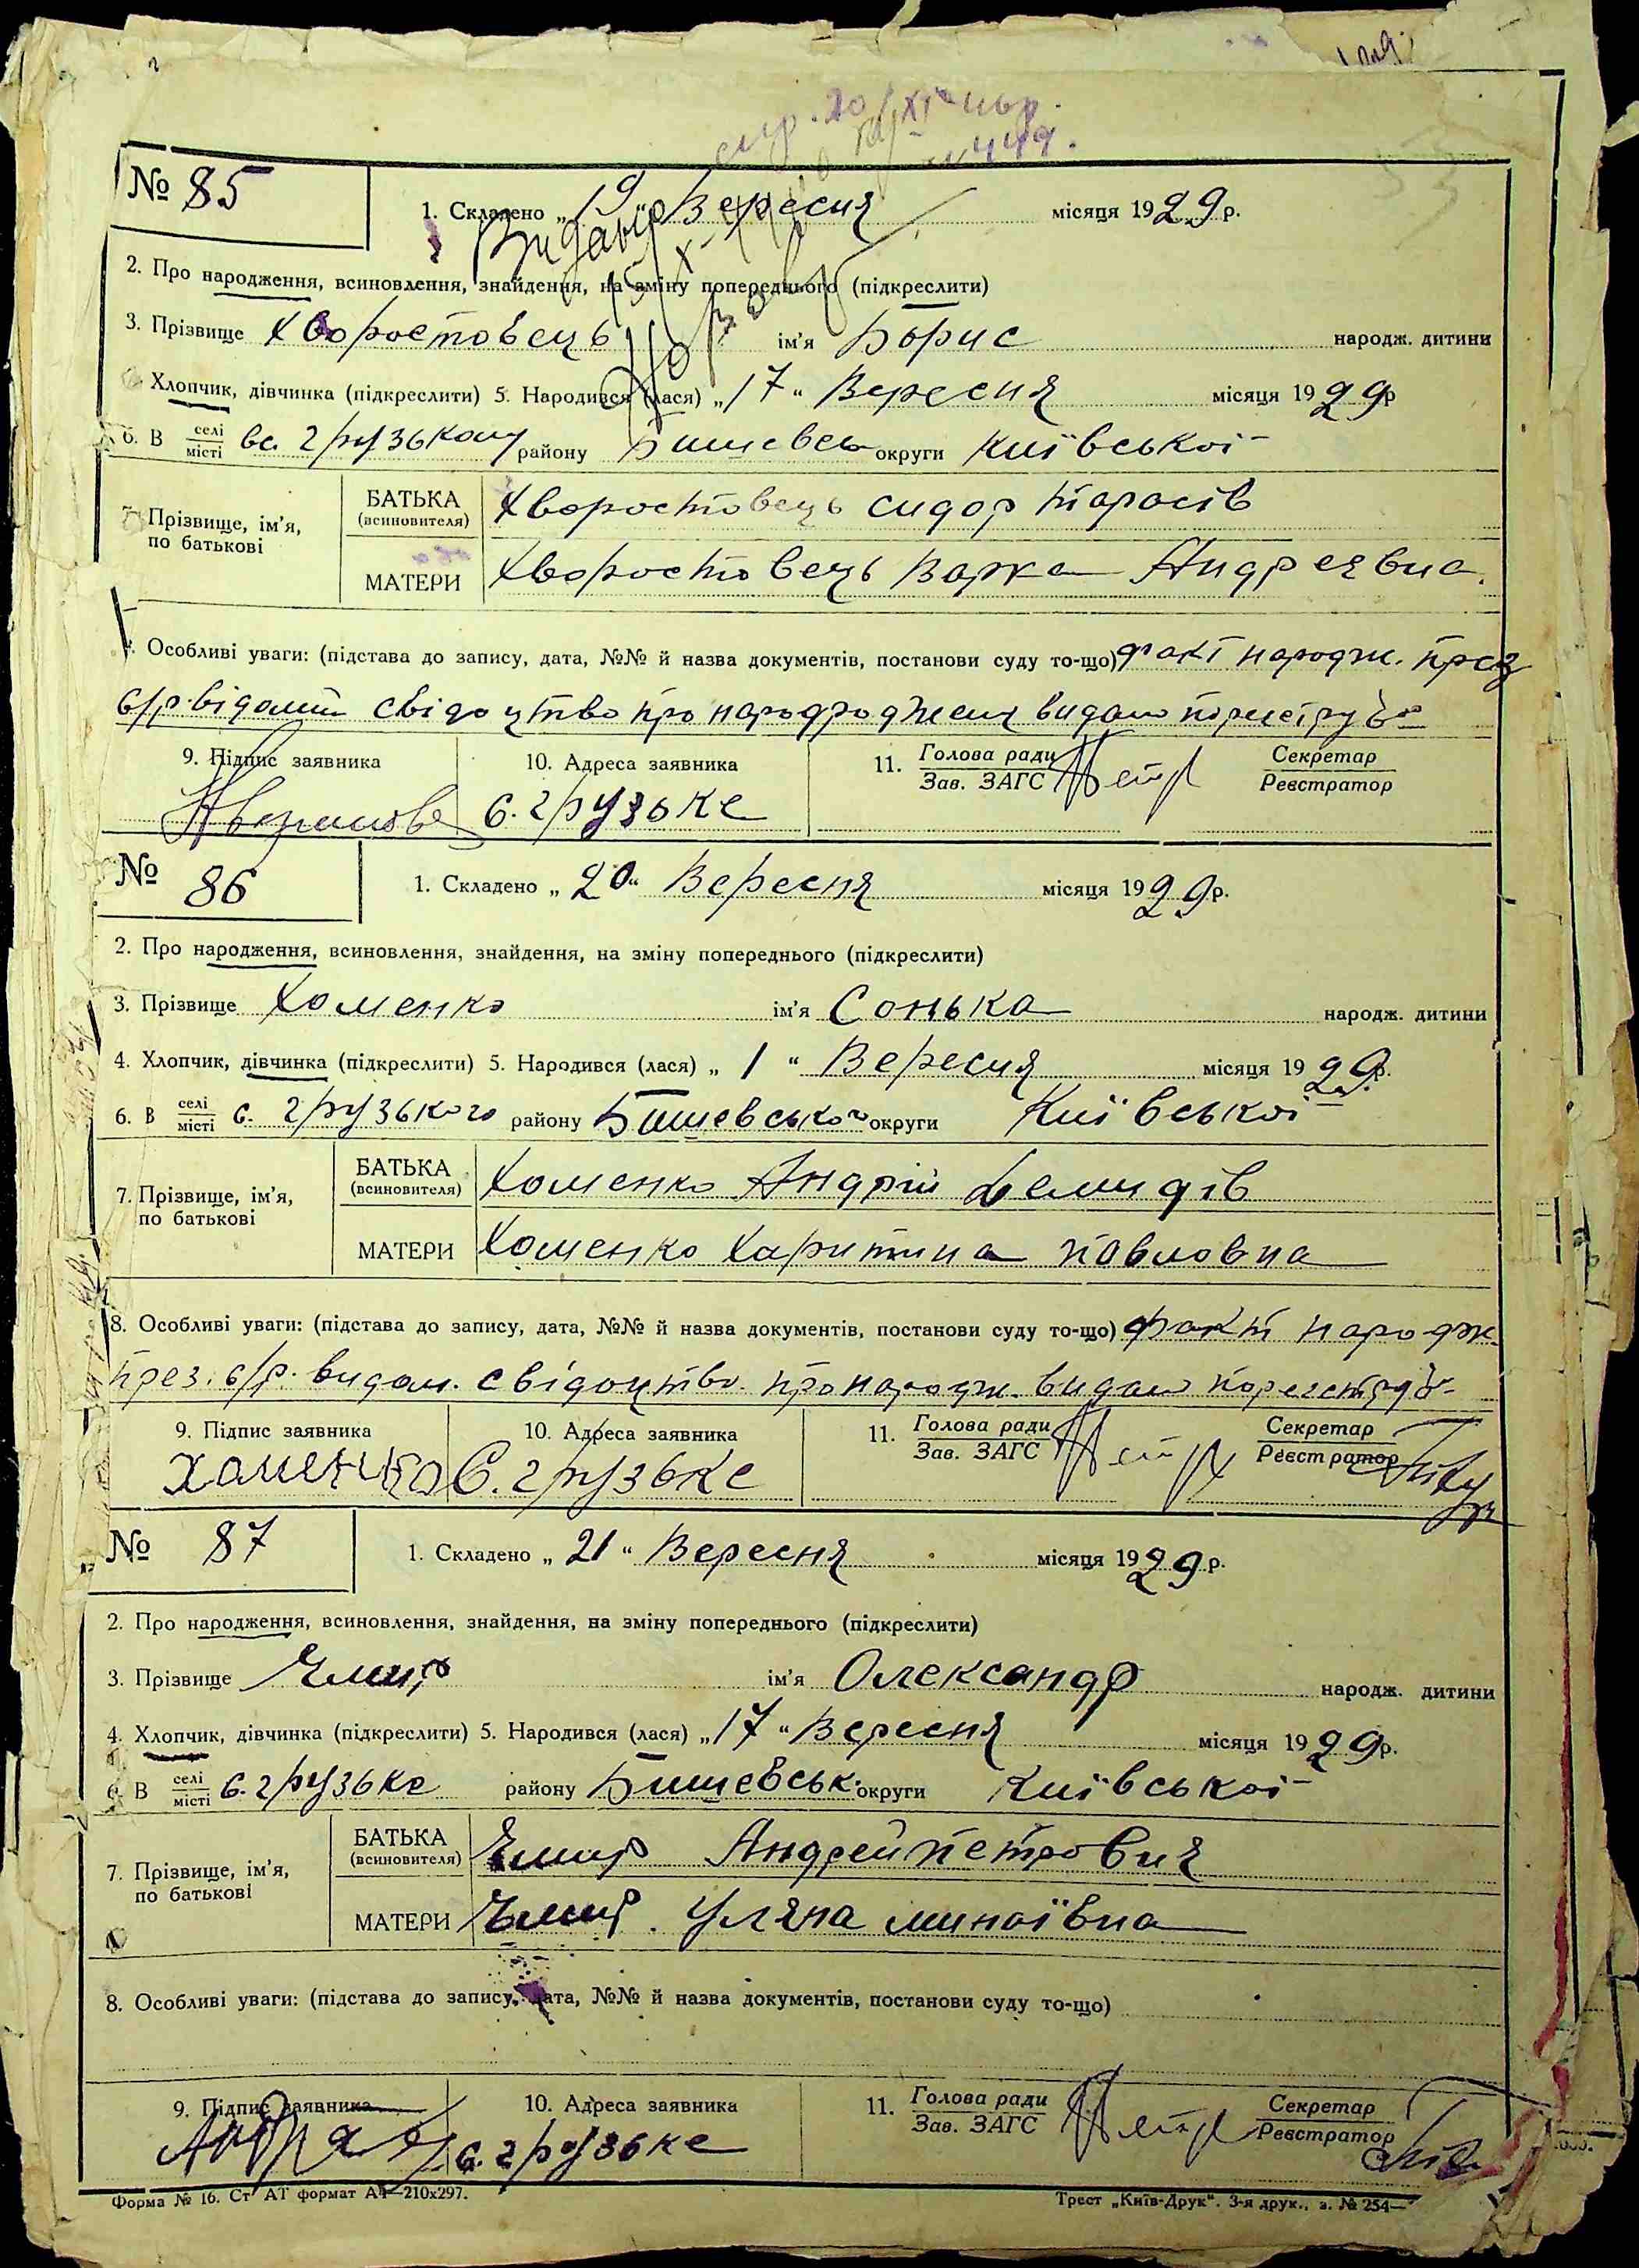 № 85
1. Складено „ 19 “ Вересня місяця 1929 р.
2. Про народження, всиновлення, знайдення, на зміну попереднього (підкреслити)
3. Прізвище Хворостовець ім'я Борис народж. дитини
Хлопчик, дівчинка (підкреслити) 5. Народився (лася) „ 17 “ Вересня місяця 1929 р
6. В селі/місті вс. Грузькому району Бишевськ округи Київської
7. Прізвище, ім'я, по батькові
БАТЬКА (всиновителя) Хворостовець Сидор Тарасів
МАТЕРИ Хворостовець Варка Андреевна.
Особливі уваги: (підстава до запису, дата, №№ й назва документів, постанови суду то-що) факт народж. през
с/р. відомий свідоцтво про народження видано
9. Підпис заявника 10. Адреса заявника 11. Голова ради/Зав. ЗАГС Секретар/Реєстратор
с. Грузьке
№ 86
1. Складено „ 20 “ Вересня місяця 1929 р.
2. Про народження, всиновлення, знайдення, на зміну попереднього (підкреслити)
3. Прізвище Хоменко ім'я Сонька народж. дитини
4. Хлопчик, дівчинка (підкреслити) 5. Народився (лася) „ 1 “ Вересня місяця 1929 р.
6. В селі/місті с. Грузького району Бишевського округи Київської
7. Прізвище, ім'я, по батькові
БАТЬКА (всиновителя) Хоменко Андрій Демидів
МАТЕРИ Хоменко Харитина Павловна
8. Особливі уваги: (підстава до запису, дата, №№ й назва документів, постанови суду то-що) факт народж.
през. с/р. видом. свідоцтво про народж. видано
9. Підпис заявника 10. Адреса заявника 11. Голова ради/Зав. ЗАГС Секретар/Реєстратор
Хаменко с. Грузьке
№ 87
1. Складено „ 21 “ Вересня місяця 1929 р.
2. Про народження, всиновлення, знайдення, на зміну попереднього (підкреслити)
3. Прізвище ім'я Олександр народж. дитини
4. Хлопчик, дівчинка (підкреслити) 5. Народився (лася) „ 17 “ Вересня місяця 1929 р.
В селі/місті с. Грузьке району Бишевськ. округи Київської
7. Прізвище, ім'я, по батькові
БАТЬКА (всиновителя) Андрей Петрович
МАТЕРИ Уляна Минаївна
8. Особливі уваги: (підстава до запису, дата, №№ й назва документів, постанови суду то-що)
9. Підпис заявника 10. Адреса заявника 11. Голова ради/Зав. ЗАГС Секретар/Реєстратор
с. Грузьке
Форма № 16. Ст АТ формат А4—210х297.
Трест „Київ-Друк“. 3-я друк., з. № 254—